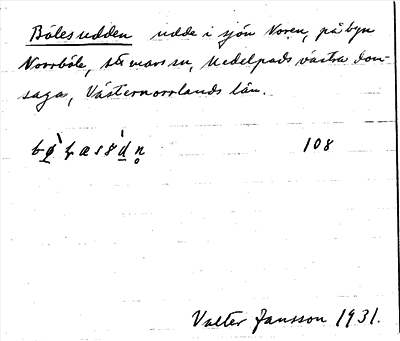 Bölesudden udde i sjön Noren, på byn
Norrböle, Stöde sn, Medelpads västra dom-
saga, Västernorrlands län.
108
Valter Jansson 1931.